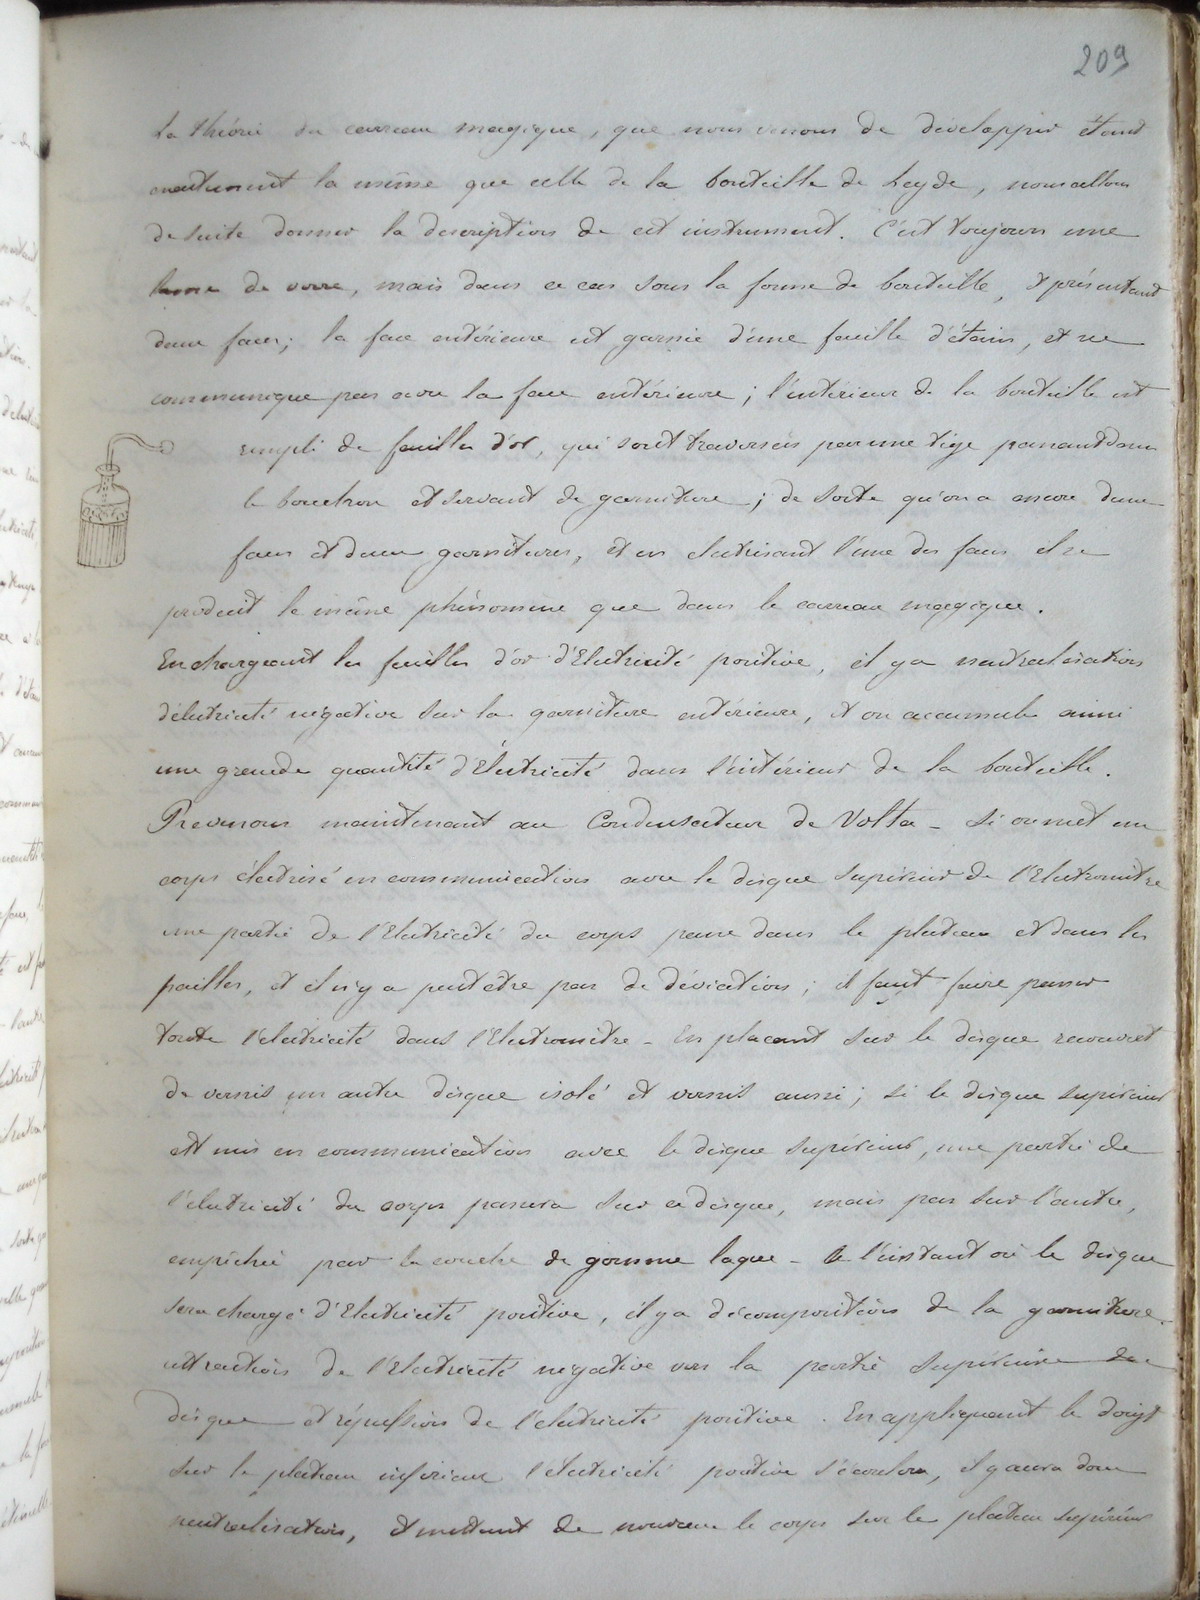 209
La théorie du carreau magique, que nous venons de développer étant
exactement la même que celle de la bouteille de Leyde, nous allons
de suite donner la description de cet instrument. C'est toujours une
lame de verre, mais dans ce cas sous la forme de bouteille, et présentant
deux faces; la face extérieure est garnie d'une feuille d'étain, et ne
communique pas avec la face intérieure; l'intérieur de la bouteille est
empli de feuilles d'or, qui sont traversées par une tige passant dans
le bouchon et servant de garniture; de sorte qu'on a encore deux
faces et deux garnitures, et en électrisant l'une des faces il se
produit le même phénomène que dans le carreau magique.
En chargeant les feuilles d'or d'Electricité positive, il y a neutralisation
d'électricité négative sur la garniture extérieure, et on accumule ainsi
une grande quantité d'Electricité dans l'intérieur de la bouteille.
Revenons maintenant au Condensateur de Volta - Si on met un
corps électrisé en communication avec le disque supérieur de l'Electromètre
une partie de l'Electricité du corps passe dans le plateau et dans les
pailles, et il n'y a peut etre pas de déviation; il faut faire passer
toute l'électricité dans l'Electromètre - En plaçant sur le disque recouvert
de vernis un autre disque isolé et vernis aussi; si le disque supérieur
est mis en communication avec le disque supérieur, une partie de
l'électricité du corps passera sur ce disque, mais pas sur l'autre,
empêchée par la couche de gomme laque - A l'instant où le disque
sera chargé d'Electricité positive, il y a décomposition de la garniture.
attraction de l'Electricité négative vers la partie supérieure du
disque et répulsion de l'électricité positive. En appliquant le doigt
sur le plateau inférieur l'électricité positive s'écoulera, il y aura donc
neutralisation, et mettant de nouveau le corps sur le plateau supérieur